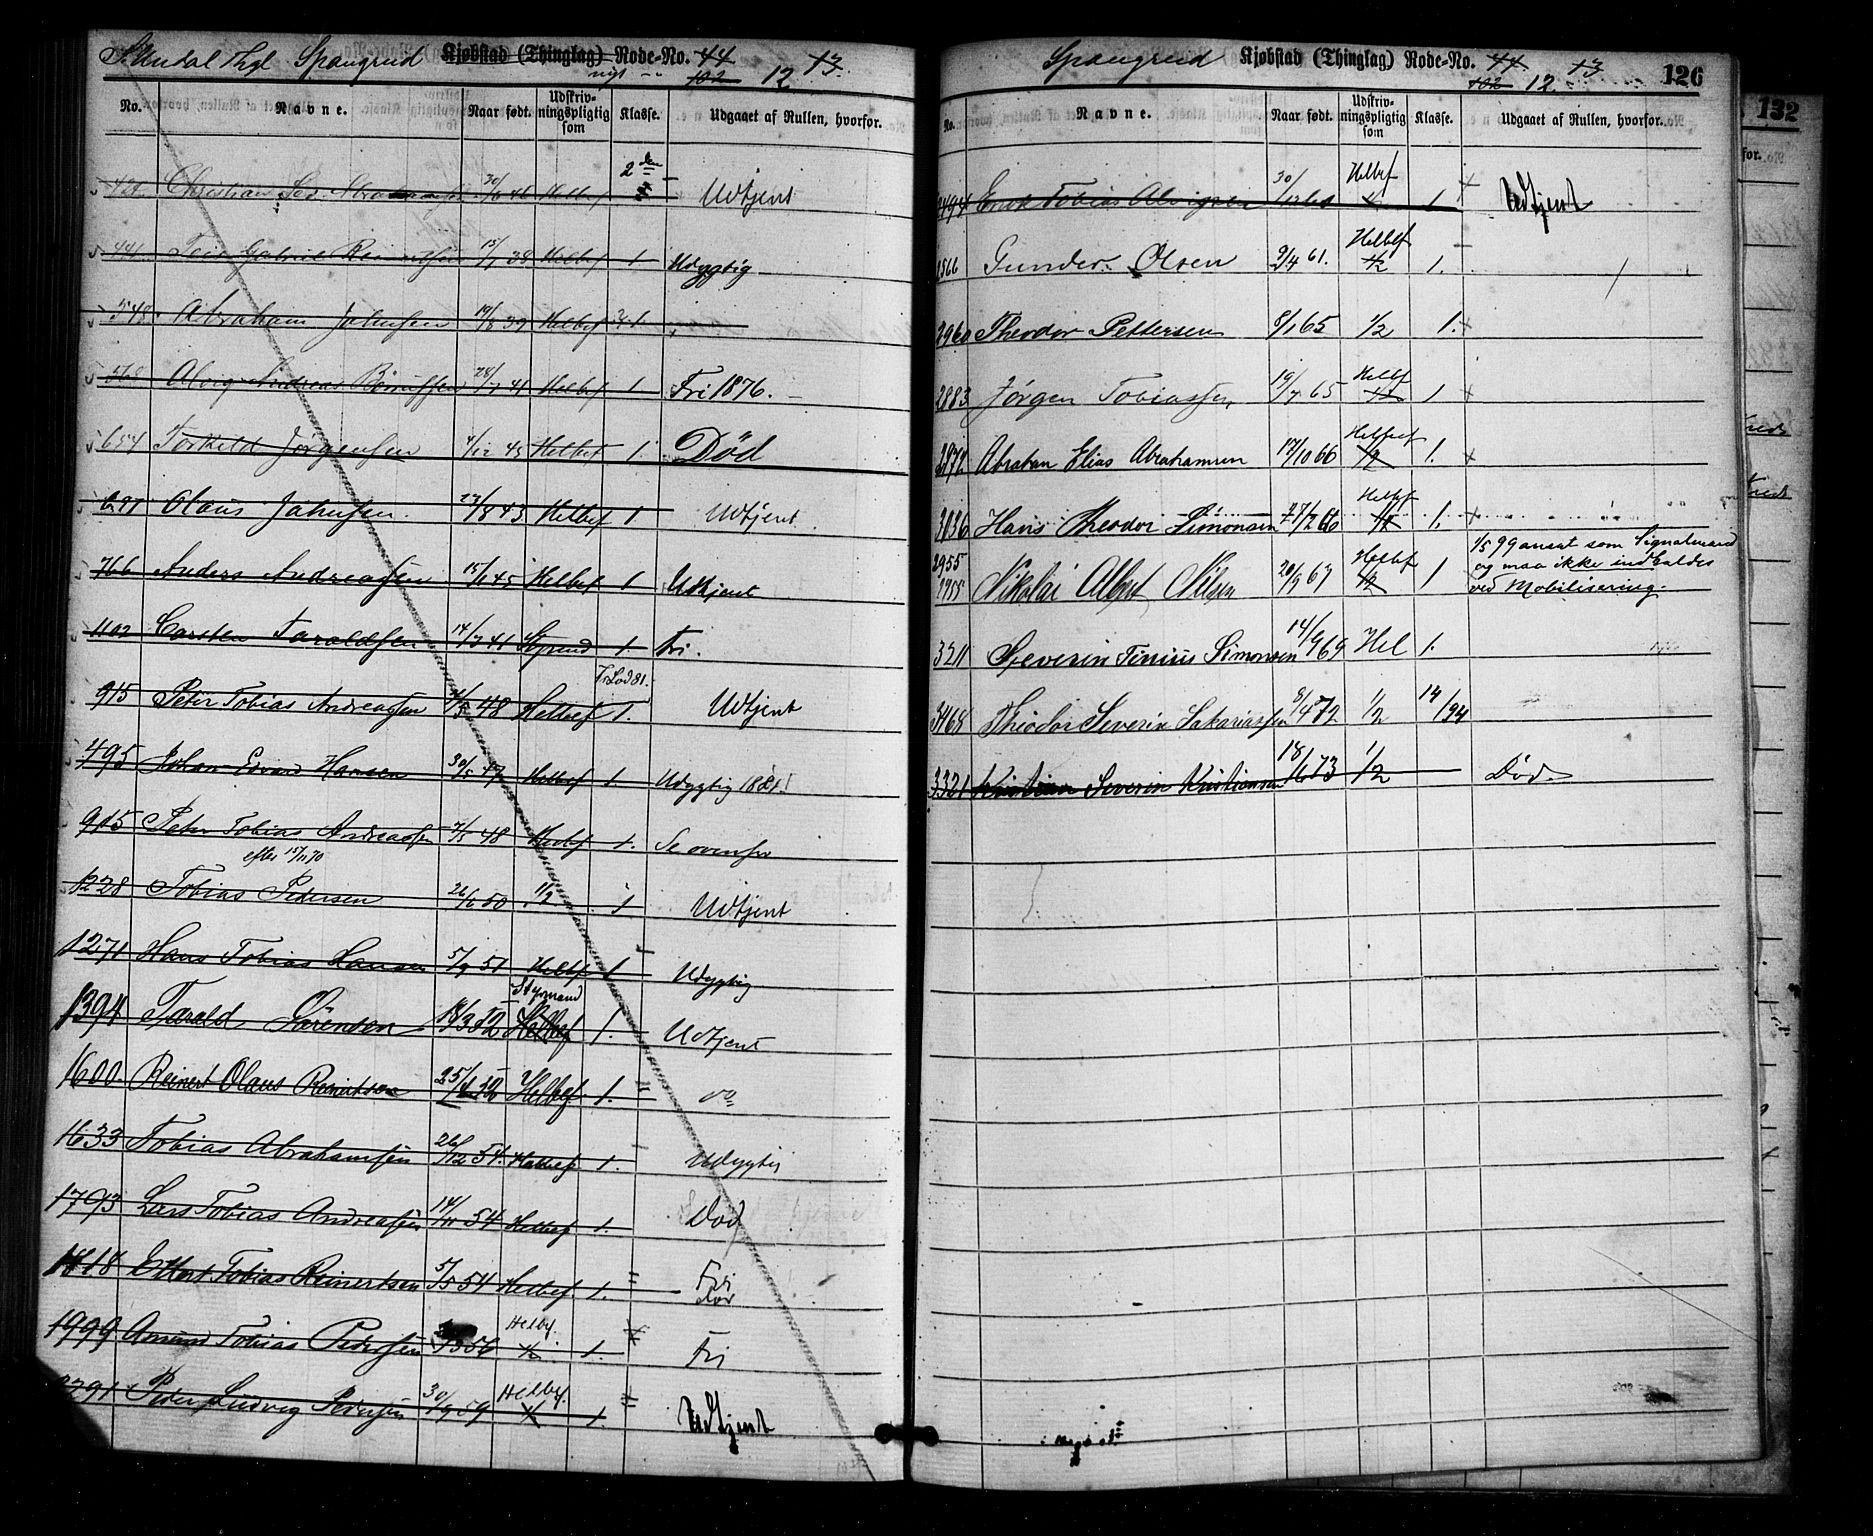 S. Undal Thgl Spangrud Kjøbstad (Thinglag) Rode-No. 44
102 12 13
No. Navne. Naar født. Udskrivningspligtig som Klasse. Udgaaet af Rullen, hvorfor.
2den
421 Christian 30/6 46 Helbef Udtjent
441 Gabriel 15/7 39 Helbef 1 Udygtig
548 Abraham Johnsen 19/8 39 Helbef 1
568 Andreas 28/7 41 Helbef 1 Fri 1876.
654 Torkild Jørgensen 4/12 45 Helbef 1 Død
691 Olaus Johnsen 27/8 43 Helbef 1 Udtjent
766 Anders Andreassen 15/1 45 Helbef 1 Udtjent
1102 Carsten Taraldsen 14/7 41 Styrmd 1 Fri.
915 Peter Tobias Andreassen 4/5 48 Helbef 1. Udtjent
495 Johan Edvard Hansen 30/5 47 Helbef 1. Udygtig 1881
915 Peter Tobias Andreassen 7/5 48 Helbef 1.
efter 15/11 70
1228 Tobias Pedersen 26/6 50 1/2 1 Udtjent
1271 Hans Tobias Hansen 5/9 51 Helbf 1 Udygtig
Styrmand
1394 Tarald Sørensen 18/3 52 Helbef 1. Udtjent
1600. Reinert Olaus Reinertsen 25/4 52 Helbef 1. do
1633 Tobias Abrahamsen 26/12 54. Helbef 1. Udygtig
1793 Lars Tobias Andreassen 14/11 54 Helbef 1. Død
1818 Tobias Reinertsen 5/5 54 Helbef 1. Fri
Død
Helbef.
1999 Amund Tobias Pedersen 56 1/2 1. Fri
Helbef.
2291 Peder Ludvig Pedersen 30/9 59 1. Udtjent
Spangrud Kjøbstad (Thinglag) Rode-No. 44. 13
102 12. 126
No. Navne. Naar født. Udskrivningspligtig som Klasse. Udgaaet af Rullen, hvorfor.
Helbef
2494 Erik Tobias 30/12 60 1. Udtjent
Helbef
2566 Gunder Olsen 9/4 61. 1/2 1.
2960 Theodor Pettersen 8/1 65 1/2 1.
Helbf
2883 Jørgen Tobiassen 19/7 65 1
Helbef
2972 Abraham Elias Abrahamsen 17/10 66 1/2 1.
Helbf
3036 Hans Theodor Simonsen 27/2 66 1.
1/5 99 ansat som Signalmand
2955 Helbf og maa ikke indkaldes
2955 Nikolai Albert Nilsen 20/9 67 1/2 1 ved Mobilisering.
3211 Severin Tinius Simonsen 14/9 69 Hel 1.
3468 Theodor Severin Sakariassen 8/4 72 1/2 14/94
3321 Kristian Severin Kristiansen 18/6 73 1/2 Død.
132